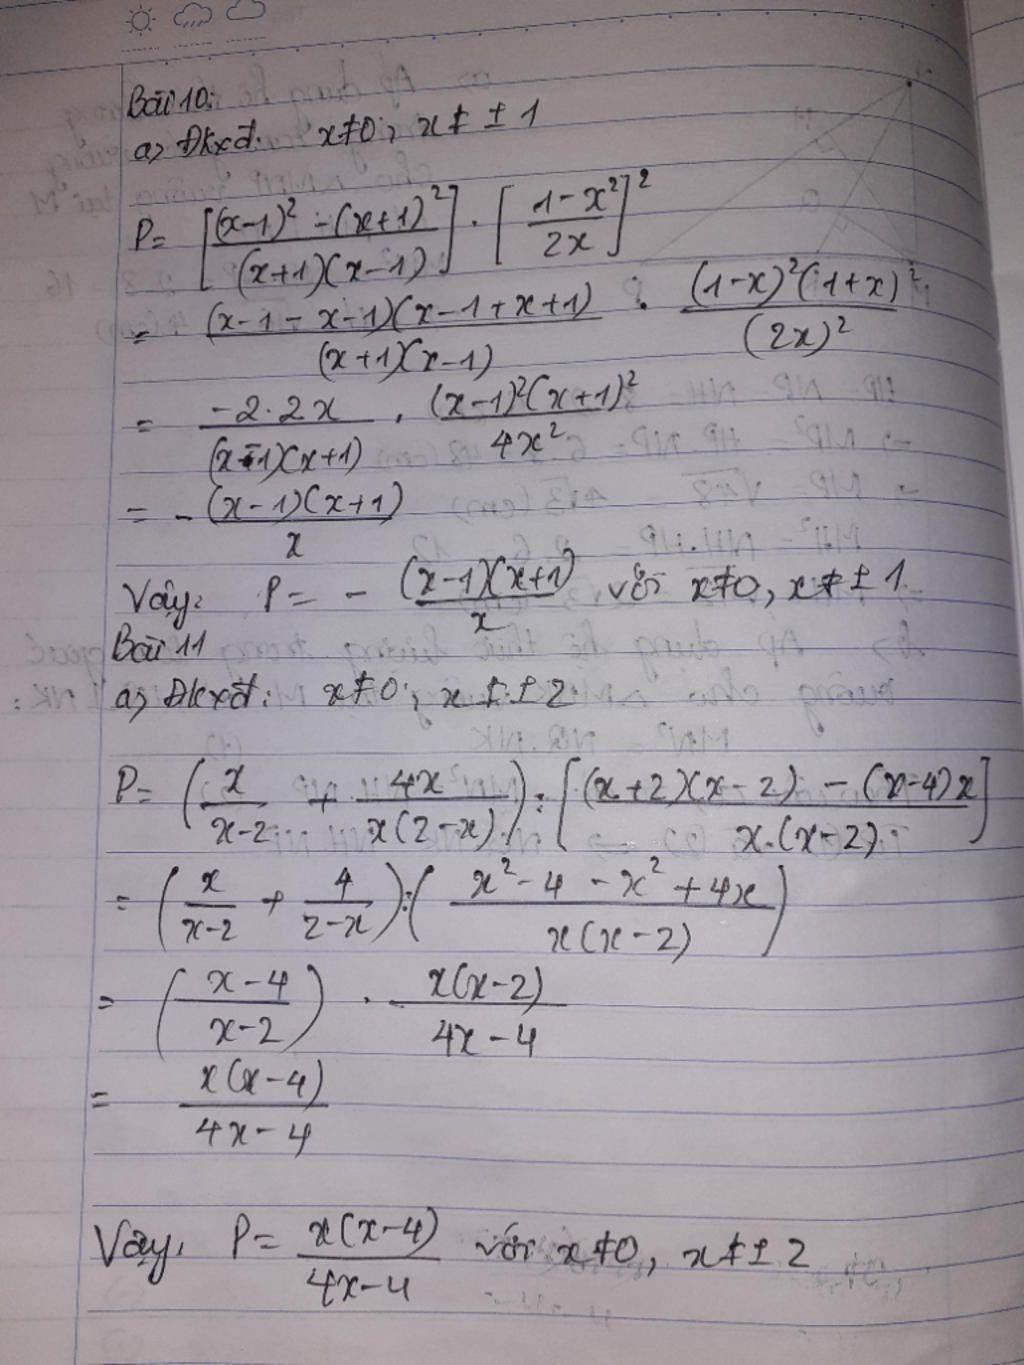 Bài 10:
a) Đkxđ: x≠0; x ≠ ±1
P = [((x-1)² - (x+1)²)/((x+1)(x-1))] . [(1-x²)/(2x)]²
= ((x-1-x-1)(x-1+x+1))/((x+1)(x-1)) . ((1-x)²(1+x)²)/((2x)²)
= (-2.2x)/((x-1)(x+1)) . ((x-1)²(x+1)²)/(4x²)
= - ((x-1)(x+1))/x
Vậy: P = - ((x-1)(x+1))/x với x≠0, x≠±1
Bài 11
a) Đkxđ: x≠0; x ≠ ±2
P = (x/(x-2) + 4x/(x(2-x))) : [((x+2)(x-2) - (x-4)x)/(x.(x-2))]
= (x/(x-2) + 4/(2-x)) : ((x²-4-x²+4x)/(x(x-2)))
= ((x-4)/(x-2)) . (x(x-2))/(4x-4)
= (x(x-4))/(4x-4)
Vậy, P = (x(x-4))/(4x-4) với x≠0, x≠±2